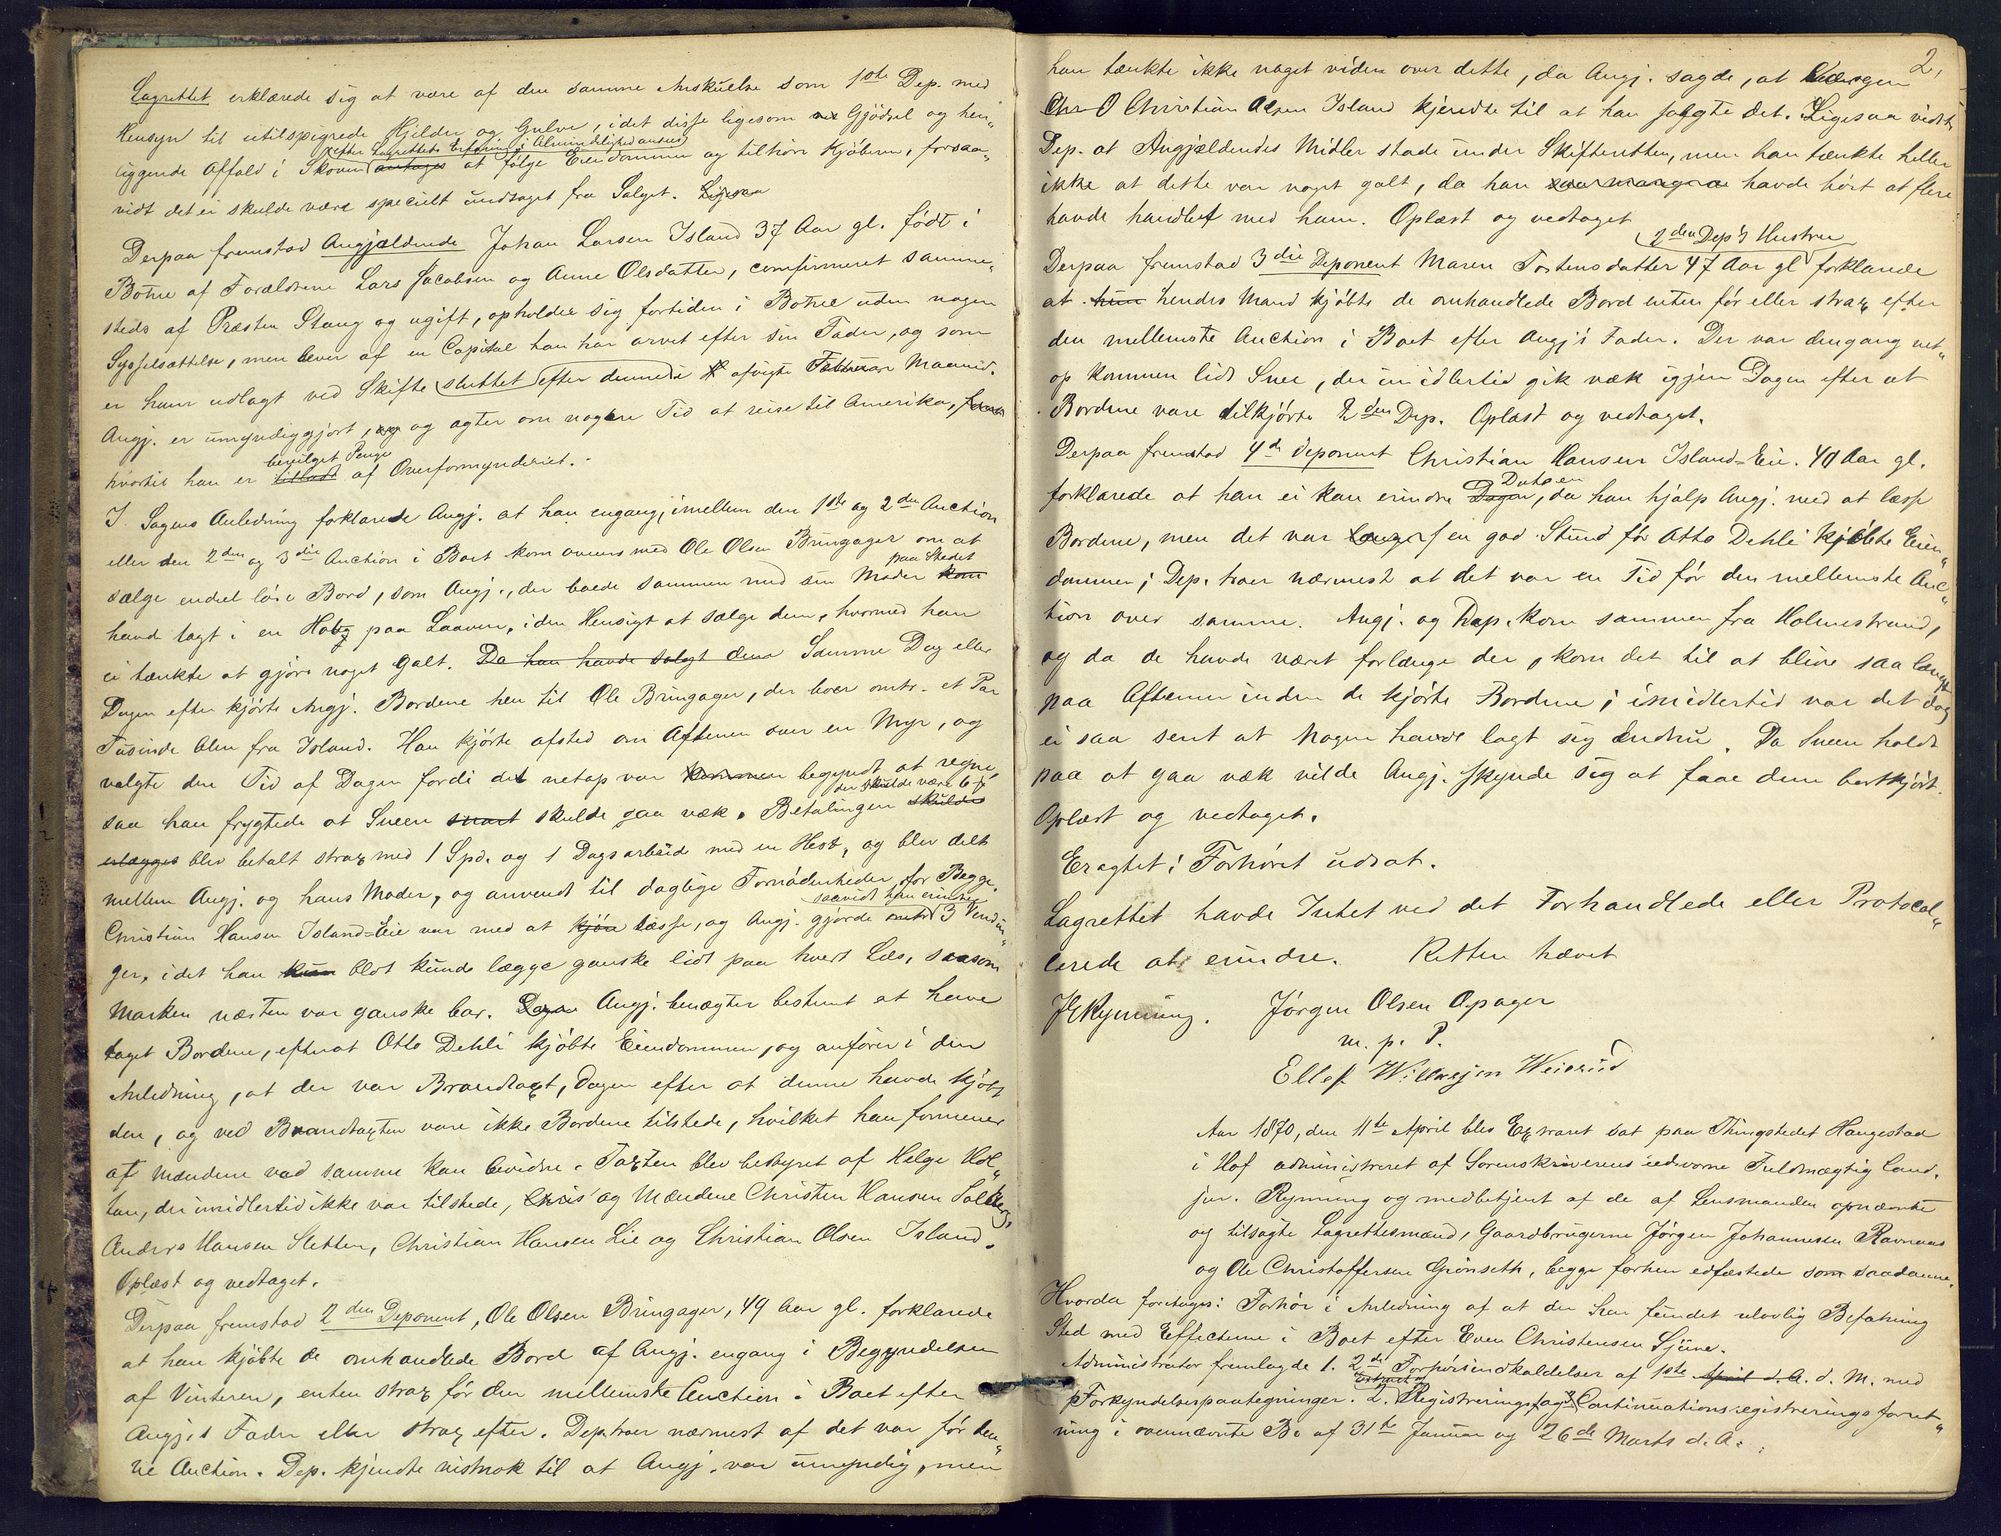 Lagrettet erklærede sig at være af den samme Anskuelse som 1ste Dep. med
Hensyn til utilspigrede Hjelder og Gulve, idet disse ligesom Gjødsel og hen"
efter Lagrettets Erfaring i Almindelighed ansees
liggende Affald i Skoven antages at følge Eiendommen og tilhøre Kjøberen, forsaa"
vidt det ei skulde være specielt undtaget fra Salget. Ligesaa
Derpaa fremstod Angjældende Johan Larsen Island 37 Aar gl. født i
Botne af Forældrene Lars Jacobsen og Anne Olsdatter, confirmeret samme"
steds af Præsten Stang og ugift, opholder sig fortiden i Botne uden nogen
Sysselsættelse, men lever af en Capital han har arvet efter sin Fader, og som
er ham udlagt ved Skifte sluttet efter denne i afvigte Februar Maaned.
Angj. er umyndiggjort, og og agter om nogen Tid at reise til Amerika,
bevilget Penge
hvortil han er tilladt af Overformynderiet.
I Sagens Anledning forklarede Angj. at han engang, imellem den 1ste og 2den Auction
eller den 2den og 3die Auction i Boet kom overens med Ole Olsen Bringager om at
paa Stedet
sælge endel løse Bord, som Angj., der boede sammen med sin Moder kom
havde lagt i en Hob paa Laaven, i den Hensigt at sælge dem, hvormed han
ei tænkte at gjøre noget Galt. Da han havde solgt dem Samme Dag eller
Dagen efter kjørte Angj. Bordene hen til Ole Bringager, der boer omtr. et Par
Tusinde Alen fra Island. Han kjørte afsted om Aftenen over en Myr, og
valgte den Tid af Dagen fordi det netop var kommen begyndt at regne,
der skulde være 6
saa han frygtede at Sneen snart skulde gaa væk. Betalingen skulde
erlægges blev betalt strax med 1 Spd. og 1 Dags arbeide med en Hest, og blev delt
mellem Angj. og hans Moder, og anvendt til daglige Fornødenheder for Begge.
saavidt han erindrer
Christian Hansen Island-Eie var med at kjøre læsse, og Angj. gjorde omtr 3 Vendin"
ger, idet han kun blot kunde lægge ganske lidt paa hvert Læs, saasom
Marken næsten var ganske bar. Dagen Angj. benægter bestemt at have
taget Bordene, efterat Otto Dehli kjøbte Eiendommen, og anfører i den
Anledning, at der var Brandtaxt, Dagen efter at denne havde kjøbt
den, og ved Brandtaxten vare ikke Bordene tilstede, hvilket han formener
at Mændene ved samme kan bevidne. Taxten blev bestyret af Helge Hol"
tan, der imidlertid ikke var tilstede, Chris og Mændene Christen Hansen Solberg,
Anders Hansen Sletten, Christian Hansen Lie og Christian Olsen Island.
Oplæst og vedtaget.
Derpaa fremstod 2den Deponent, Ole Olsen Bringager, 49 Aar gl. forklarede
at han kjøbte de omhandlede Bord af Angj. engang i Begyndelsen
af Vinteren, enten strax før den mellemste Auction i Boet efter
Angj.s Fader eller strax efter. Dep. troer nærmest at det var før den"
ne Auction. Dep. kjendte nistnok til at Angj. var umyndig, men
2,
han tænkte ikke noget videre over dette, da Angj. sagde, at Værgen
Chr O Christian Olsen Island kjendte til at han solgte det. Ligesaa vidste
Dep. at Angjældendes Midler stode under Skifteretten, men han tænkte heller
ikke at dette var noget galt, da han saa mange havde hørt at flere
havde handlet med ham. Oplæst og vedtaget
2den Dep's Hustru
Derpaa fremstod 3die Deponent Maren Torstensdatter 47 Aar gl forklarede
at hun hendes Mand kjøbte de omhandlede Bord enten før eller strax efter
den mellemste Auction i Boet efter Angj's Fader. Der var dengang net"
op kommen lidt Snee, der imidlertid gik væk igjen Dagen efter at
Bordene vare tilkjørte 2den Dep. Oplæst og vedtaget.
Derpaa fremstod 4de Deponent Christian Hansen Island-Eie. 40 Aar gl.
Datoen
forklarede at han ei kan erindre Dagen, da han hjalp Angj. med at læsse
Bordene, men det var længe en god Stund før Otto Dehli kjøbte Eien"
dommen; Dep. troer nærmest at det var en Tid før den mellemste Auc"
tion over samme. Angj. og Dep. kom sammen fra Holmestrand,
og da de havde været forlænge der, kom det til at blive saa langt
paa Aftenen inden de kjørte Bordene; imidlertid var det dog
ei saa sent at Nogen havde lagt sig endnu. Da Sneen holdt
paa at gaa væk vilde Angj. skynde sig at faae dem bortkjørt.
Oplæst og vedtaget.
Eragtet: Forhøret udsat.
Lagrettet havde Intet ved det Forhandlede eller Protocol"
lerede at erindre. Retten hævet
Rynning. Jørgen Olsen Opager
m. p. P.
Ellef Weierud
Aar 1870, den 11te April blev Extraret sat paa Thingstedet Haugestad
i Hof administreret af Sorenskriverens edsvorne Fuldmægtig Cand.
jur. Rynning og medbetjent af de af Lensmanden opnævnte
og tilsagte Lagrettesmænd, Gaardbrugerne Jørgen Johannesen Ravnaas
og Ole Christoffersen Grønseth, begge forhen edfæstede som saadanne.
Hvorda foretoges: Forhør i Anledning af at der skal fundet ulovlig Befatning
Sted med Effecterne i Boet efter Even Christensen
Administrator fremlagde 1. 2de Forhørsindkaldelser af 1ste April d. A. d. M. med
Extract af
Forkyndelsespaategninger. 2. Registrerings og Continuationsregistreringsforret"
ning i ovennævnte Bo af 31te Januar og 26de Marts d. A.: